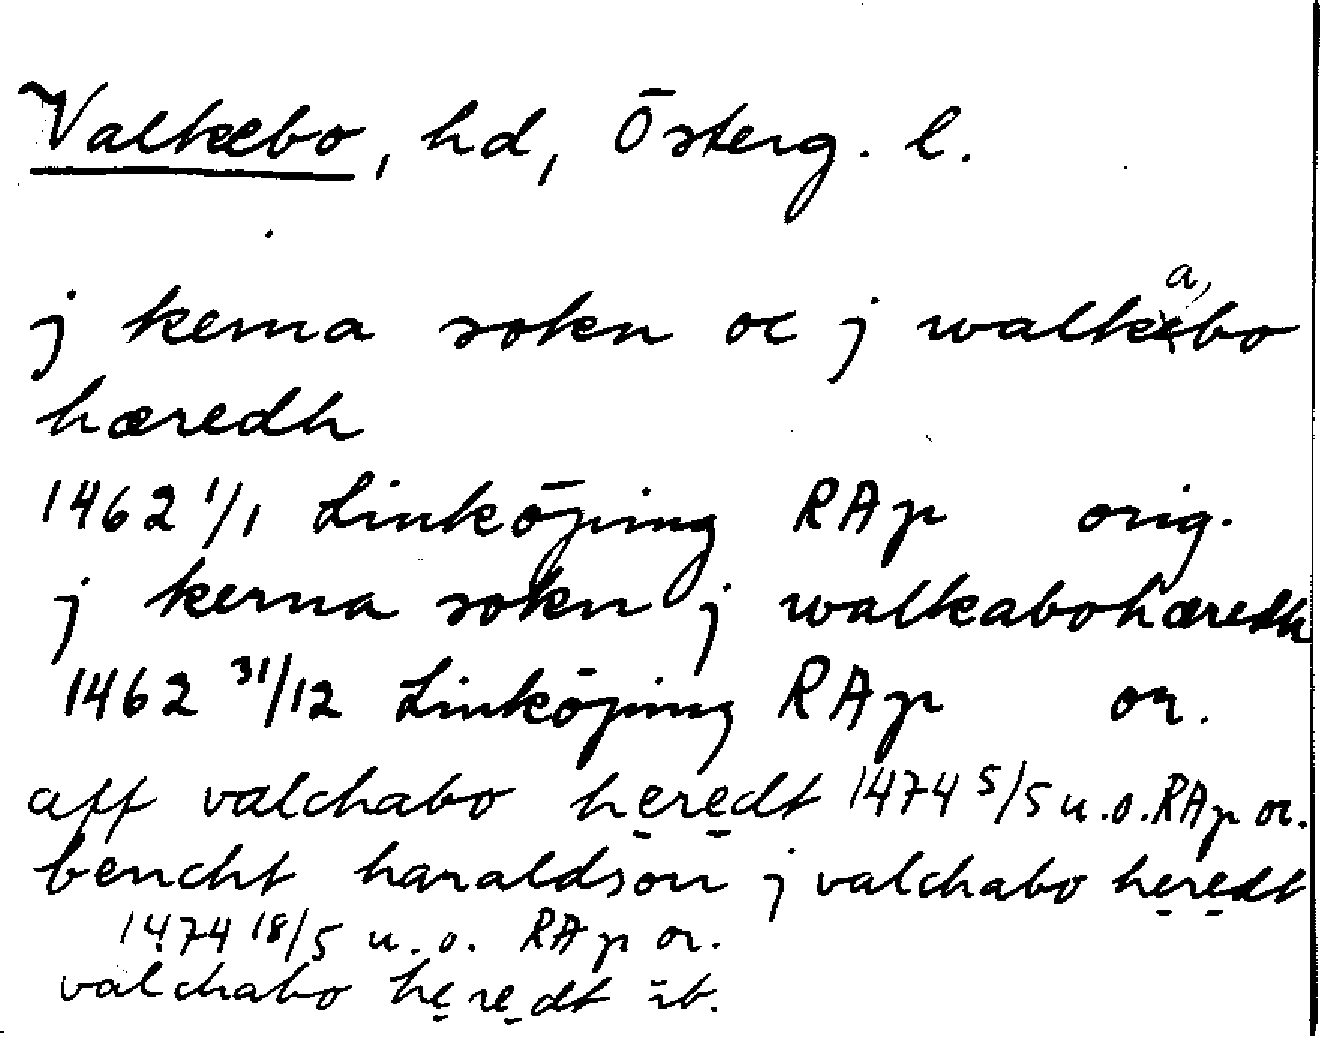 Valkebo, hd, Österg. l.
j kerna sokn oc j walkabo
hæredh
1462 1/1 Linköping RAp orig.
j kerna sokn j walkabohæredh
1462 31/12 Linköping RAp or.
aff valchabo heredt 1474 5/5 u.o. RAp or.
bencht haraldson j valchabo heredt
1474 18/5 u.o. RAp or.
valchabo heredt ib.